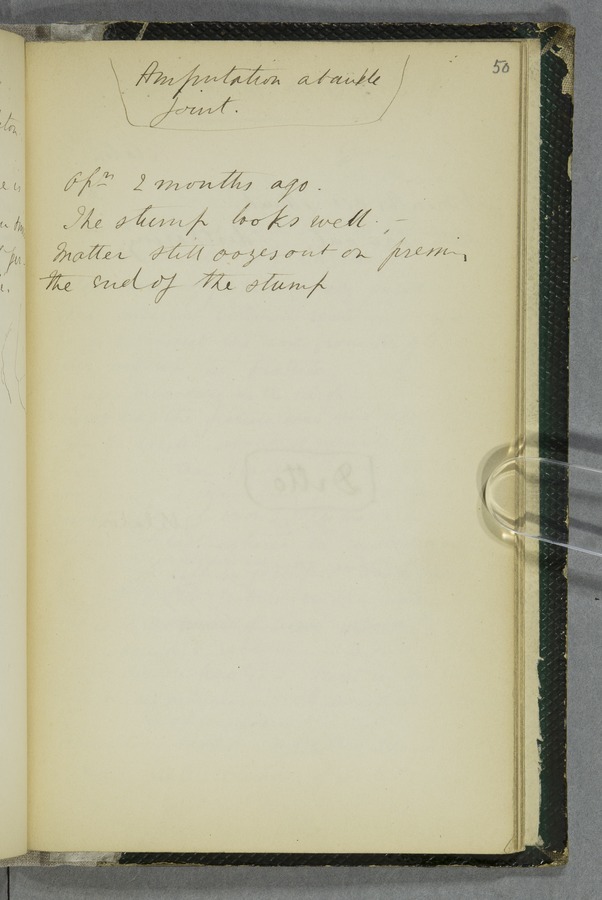 50
Amputation at ankle
Joint.
Opn 2 months ago.
The stump looks well. –
Matter still oozes out on pressing
the end of the stump
Ditto